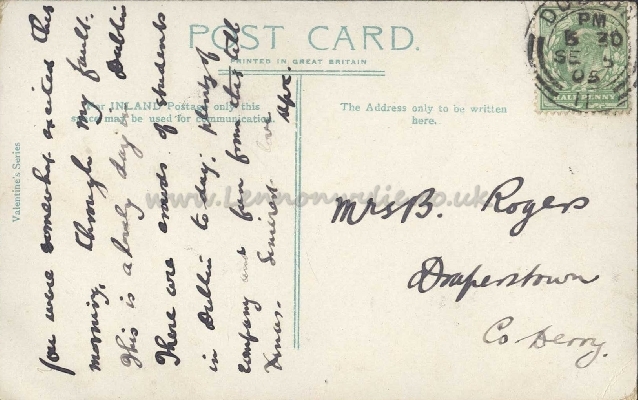 POST CARD.
PRINTED IN GREAT BRITAIN
For INLAND Postage only this
space may be used for communication.
The Address only to be written
here.
Valentine's Series
you were somewhat excited this
morning, through my fault.
This is a lovely day in Dublin
There are crowds of students
in Dublin to day. plenty of
company and fun from this till
Xmas. Sincerest love
Mrs B. Rogers
Draperstown
Co Derry.
DUBLIN
PM
5 30
SE 5
05
11
HALFPENNY
www.Lennonwylie.co.uk